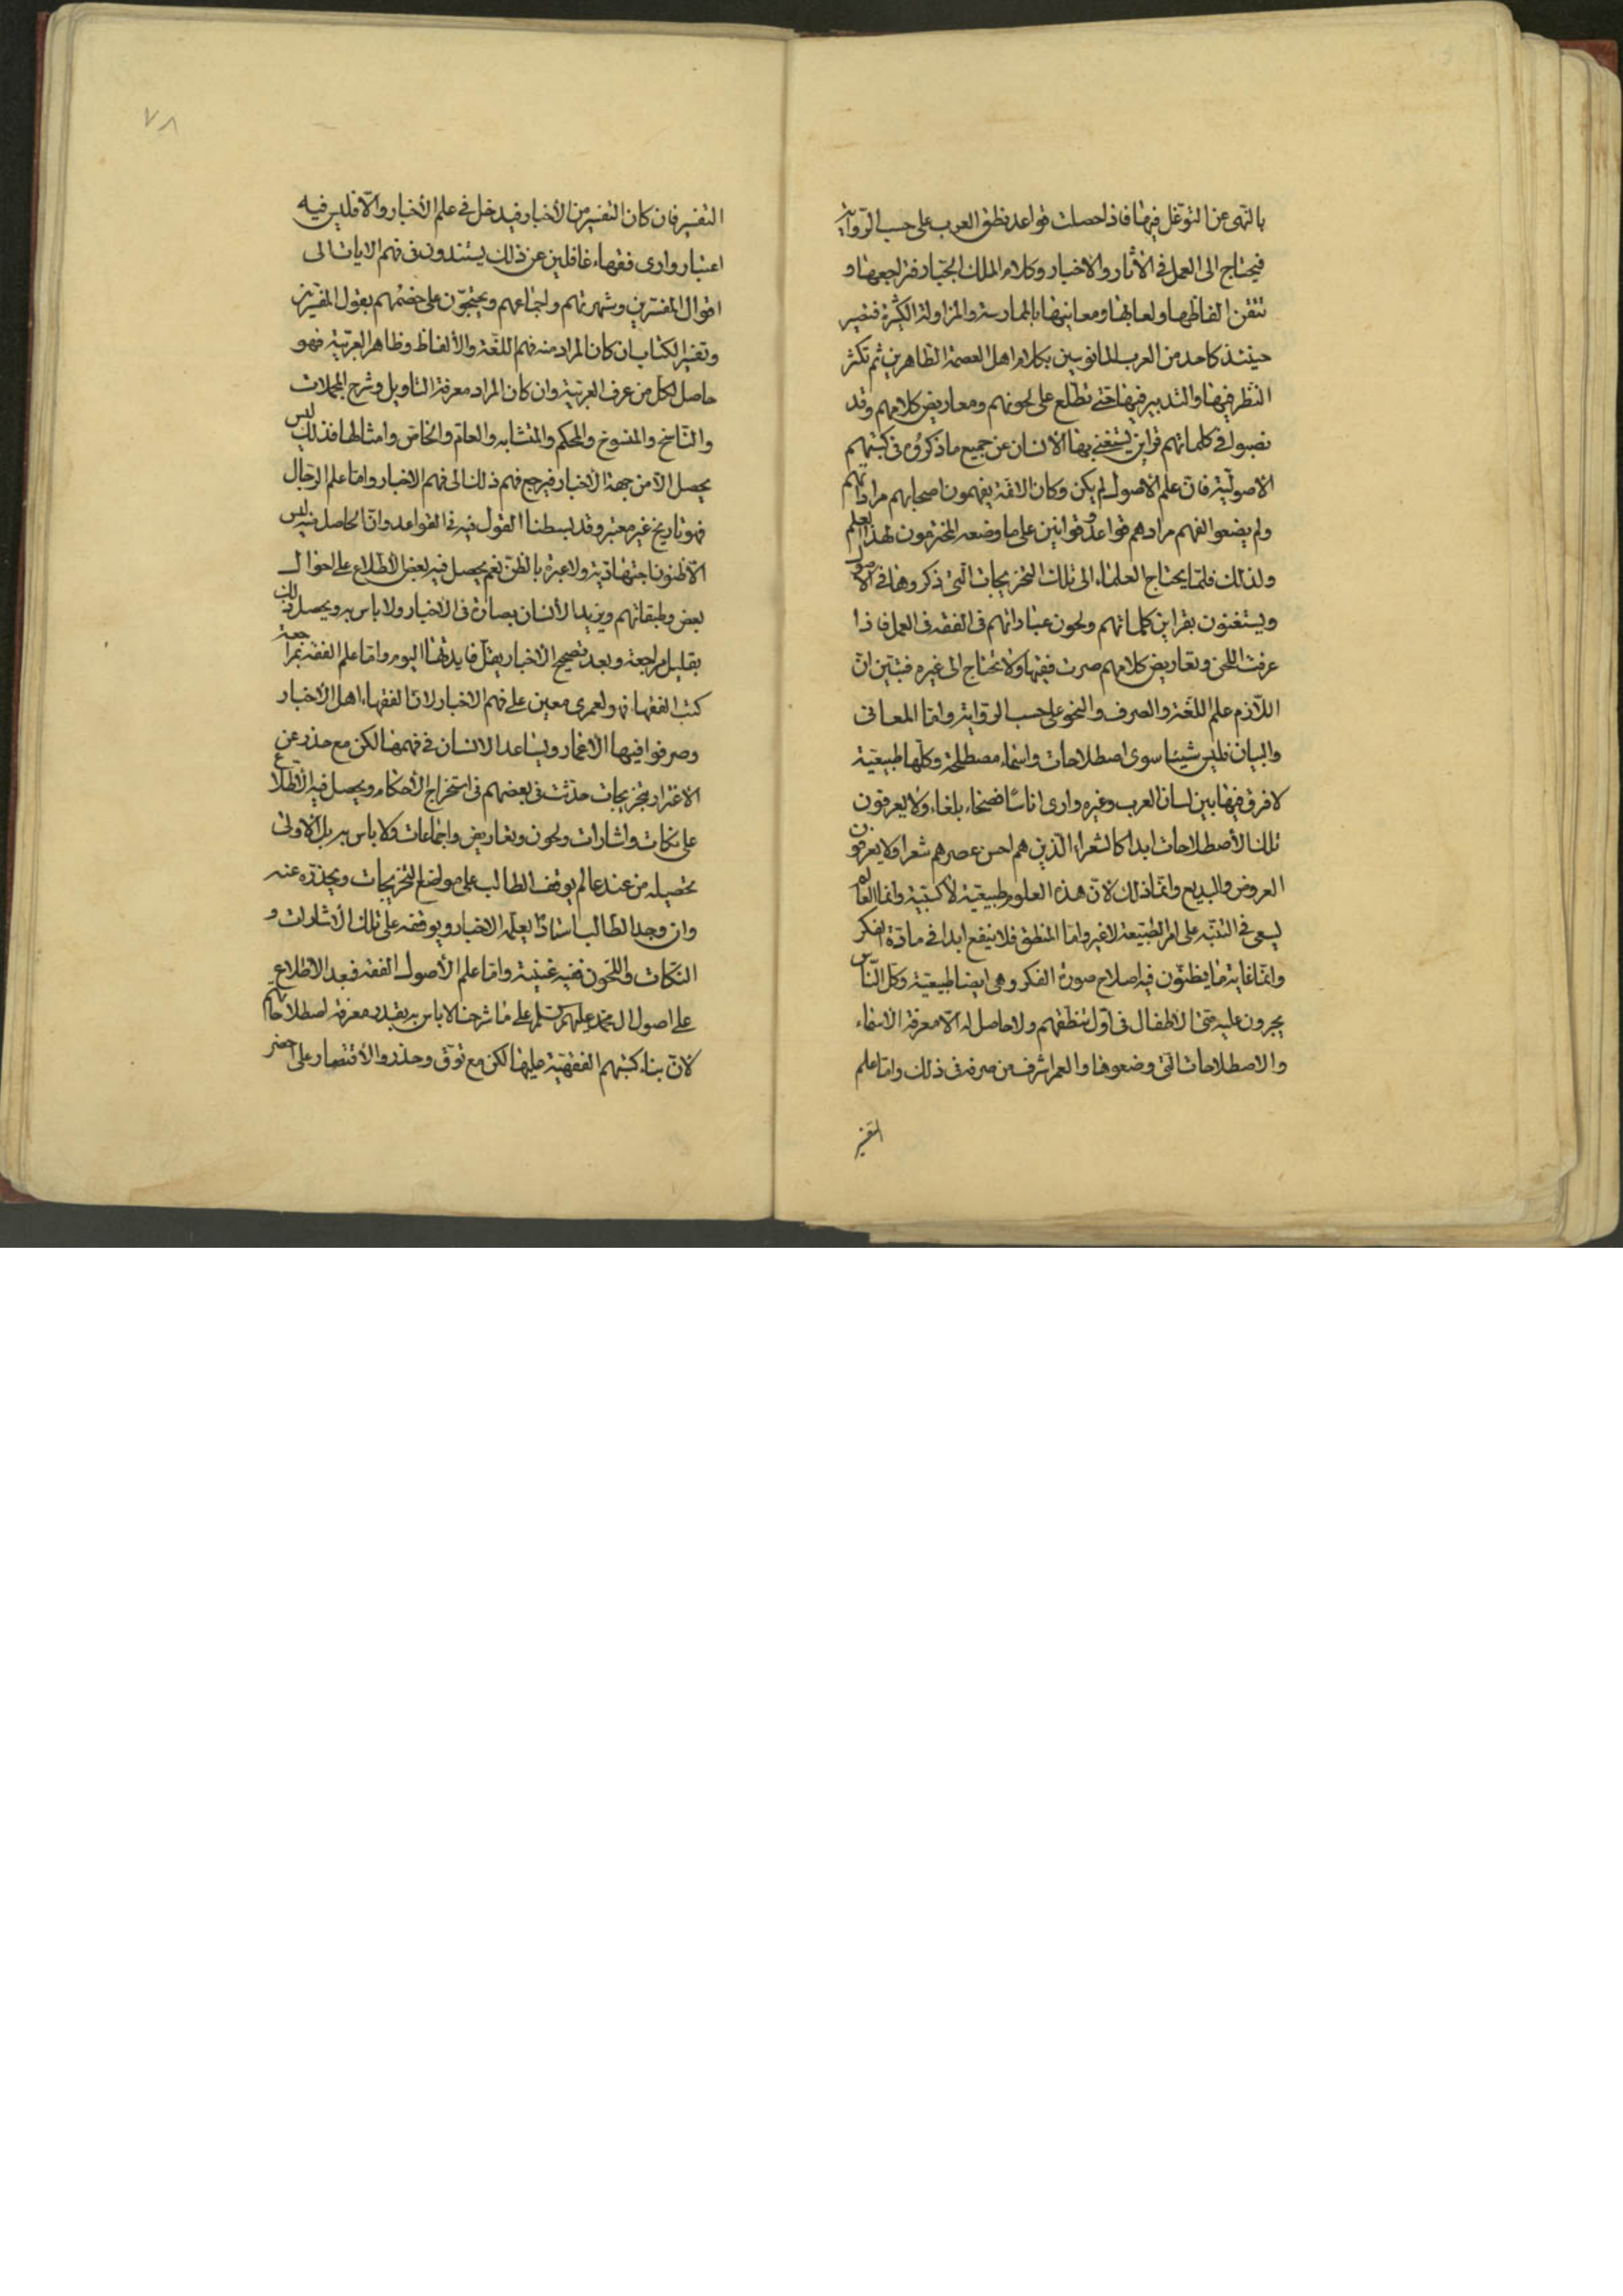 بالنهى عن التوغل فيها فاذا حصلت قواعد نطق العرب على حسب الرواية
فيحتاج الى العمل فى الآثار والاخبار وكلام الملك الجبار فتراجعها و
تتقن الفاظها ولغاتها ومعانيها بالممارسة والمزاولة الكثيرة فتصير
حينئذ كاحد من العرب المانوسين بكلام اهل العصمة الطاهرين ثم تكثر
النظر فيها والتدبير فيها حتى تطلع على لحونهم ومعاريض كلامهم وقد
نصبوا فى كلماتهم قراين يستغنى بها الانسان عن جميع ما ذكروه فى كتبهم
الاصولية فان علم الاصول لم يكن وكان الائمة يفهمون اصحابهم مراداتهم
ولم يضعوا لفهم مرادهم قواعد وقوانين على ما وضعه المخترعون لهذا العلم
ولذلك قلما يحتاج العلماء الى تلك التخريجات التى ذكروها فى الاصول
ويستغنون بقراين كلماتهم ولحون عباراتهم فى الفقه فى العمل فاذا
عرفت اللحن وتعاريض كلامهم صرت فقيها ولا تحتاج الى غيره فتبين ان
اللازم علم اللغة والصرف والنحو على حسب الرواية واما المعانى
والبيان فليس شيئا سوى اصطلاحات واسماء مصطلحة وكلها طبيعية
لا فرق فيها بين لسان العرب وغيره وارى اناسًا فصحاء بلغاء ولا يعرفون
تلك الاصطلاحات ابدا كالشعراء الذين هم احسن عصرهم شعرا ولا يعرفون
العروض والبديع وانما ذلك لان هذه العلوم طبيعية لا كسبية وانما العالم
يسعى فى التنبه على امر الطبيعة لا غير واما المنطق فلا ينفع ابدا فى مادة الفكر
وانما غاية ما يظنون فيه اصلاح صورة الفكر وهى ايضا طبيعية وكل الناس
يجرون عليه حتى الاطفال فى اول تنطقهم ولا حاصل له الا معرفة الاسماء
والاصطلاحات التى وضعوها والعمر اشرف من صرفه فى ذلك واما علم
التفسير
٧٨
التفسير فان كان التفسير من الأخبار فيدخل فى علم الأخبار والا فليس فيه
اعتبار وارى فقهاء غافلين عن ذلك يستندون فى فهم الايات الى
اقوال المفسرين وشهرتهم واجماعهم ويحتجون على خصمهم بقول المفسرين
وتفسير الكتاب ان كان المراد منه فهم اللغة والألفاظ وظاهر العربية فهو
حاصل لكل من عرف العربية وان كان المراد معرفة التاويل وشرح المجملات
والناسخ والمنسوخ والمحكم والمتشابه والعام والخاص وامثالها فذلك ليس
يحصل الا من جهة الأخبار فيرجع فهم ذلك الى فهم الاخبار واما علم الرجال
فهو تاريخ غير معتبر وقد بسطنا القول فيه فى القواعد وان الحاصل منه ليس
الا ظنون اجتهادية ولا عبرة بالظن نعم يحصل فيه بعض الأطلاع على احوال
بعض وطبقاتهم ويزيد الأنسان بصارة فى الأخبار ولا باس به ويحصل ذلك
بقليل مراجعة وبعد تصحيح الأخبار يقل فايدتها اليوم واما علم الفقه بمراجعة
كتب الفقهاء فهو لعمرى معين على فهم الاخبار لان الفقهاء اهل الأخبار
وصرفوا فيها الأعمار ويساعد الانسان فى فهمها لكن مع حذر عن
الاغترار بتخريجات حدثت فى بعضهم فى استخراج الأحكام ويحصل فيه الأطلاع
على نكات واشارات ولحون وتعاريض واجماعات ولا باس به بل الاولى
تحصيله من عند عالم يوقف الطالب على مواضع التخريجات ويحذره عنه
وان وجد الطالب استاذًا يعلمه الاخبار ويوقفه على تلك الأشارات و
النكات واللحون ففيه غنية واما علم الأصول الفقه فبعد الاطلاع
على اصول ال محمد عليهم السلم على ما شرحنا لا باس به بقدر معرفة اصطلاحاتهم
لأن بناء كتبهم الفقهية عليها لكن مع توق وحذر والأقتصار على اخصر